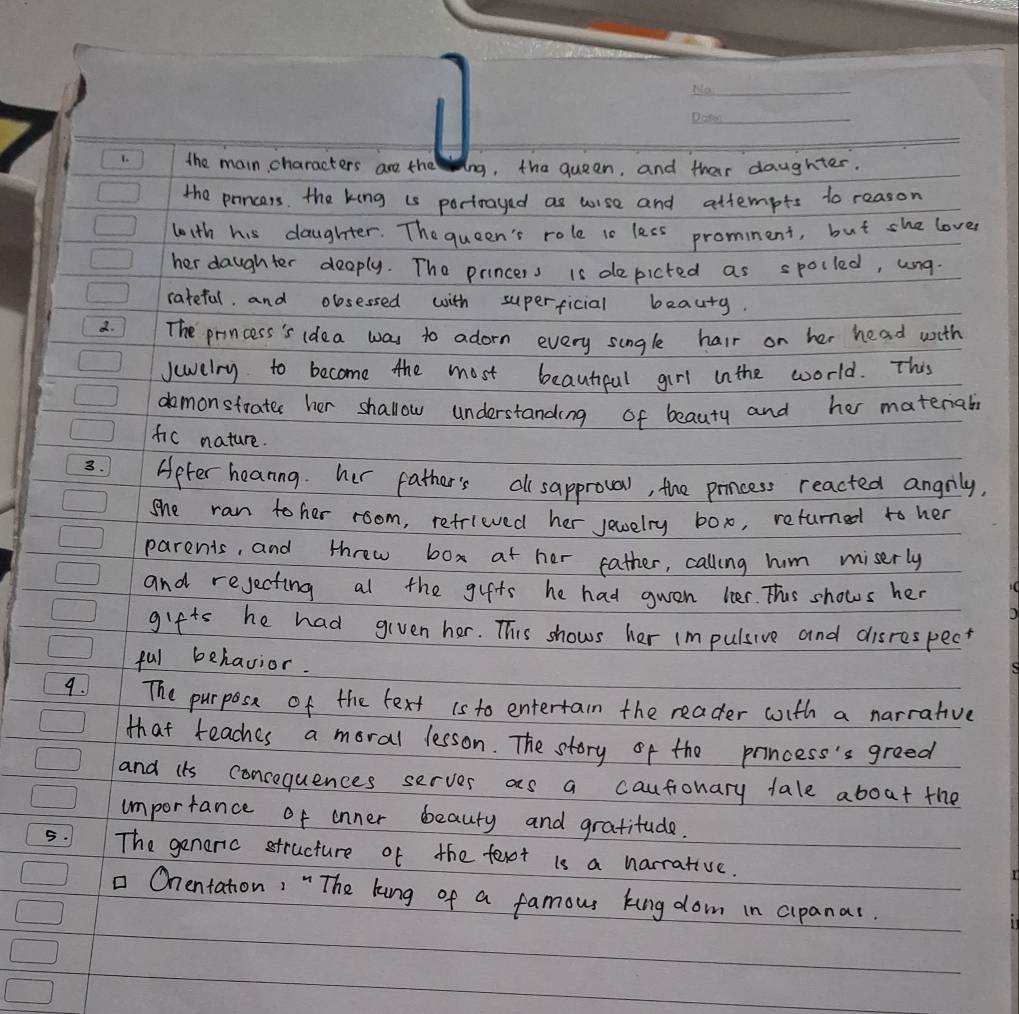 No.
Date:
1. the main characters are the king, the queen, and their daughter.
the princess. the king is portrayed as wise and attempts to reason
with his daughter. The queen's role is less prominent, but she loves
her daughter deeply. The princess is depicted as spoiled, ung-
rateful, and obsessed with superficial beauty.
2. The princess's idea was to adorn every single hair on her head with
jewelry to become the most beautiful girl in the world. This
demonstrates her shallow understanding of beauty and her materialis
tic nature.
3. After hearing. her father's disapproval, the princess reacted angrily,
she ran to her room, retrieved her jewelry box, returned to her
parents, and threw box at her father, calling him miserly
and rejecting al the gifts he had given her. This shows her
gifts he had given her. This shows her impulsive and disrespect
ful behavior.
4. The purpose of the text is to entertain the reader with a narrative
that teaches a moral lesson. The story of the princess's greed
and its consequences serves as a cautionary tale about the
importance of inner beauty and gratitude.
5. The generic structure of the text is a narrative.
□ Orientation : "The king of a famous kingdom in